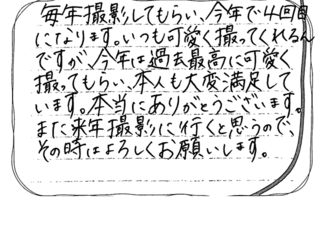 毎年撮影してもらい、今年で4回目
になります。いつも可愛く撮ってくれるん
ですが、今年は過去最高に可愛く
撮ってもらい、本人も大変満足して
います。本当にありがとうございます。
また来年撮影に行くと思うので、
その時はよろしくお願いします。